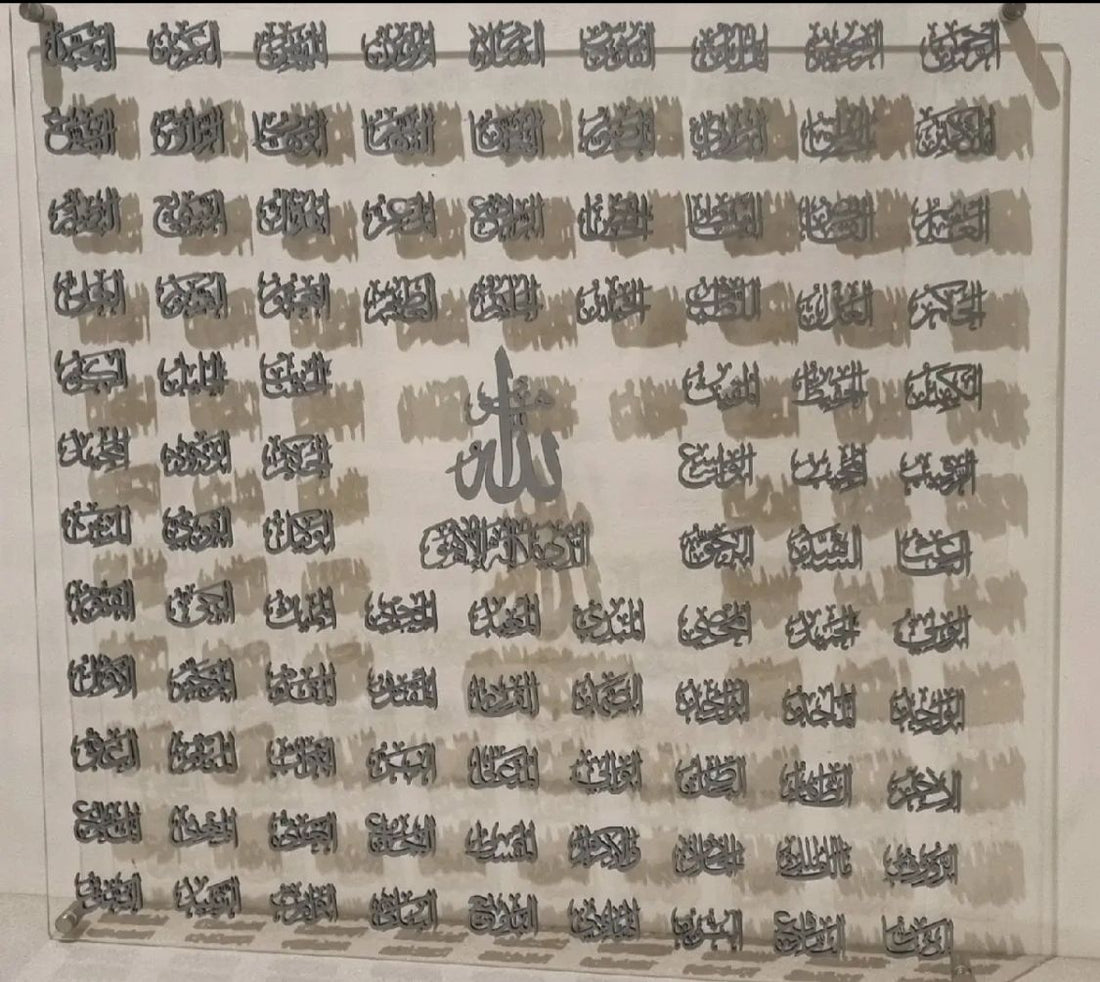 الرحمن الرحيم الملك القدوس السلام المؤمن المهيمن العزيز الجبار
المتكبر الخالق البارئ المصور الغفار القهار الوهاب الرزاق الفتاح
العليم القابض الباسط الخافض الرافع المعز المذل السميع البصير
الحكم العدل اللطيف الخبير الحليم العظيم الغفور الشكور العلي
الكبير الحفيظ المقيت هو الله الحسيب الجليل الكريم
الرقيب المجيب الواسع الحكيم الودود المجيد
الباعث الشهيد الحق الذي لا إله إلا هو الوكيل القوي المتين
الولي الحميد المحصي المبدئ المعيد المحيي المميت الحي القيوم
الواجد الماجد الواحد الصمد القادر المقتدر المقدم المؤخر الأول
الآخر الظاهر الباطن الوالي المتعالي البر التواب المنتقم العفو
الرؤوف مالك الملك ذو الجلال والإكرام المقسط الجامع الغني المغني المانع
الضار النافع النور الهادي البديع الباقي الوارث الرشيد الصبور